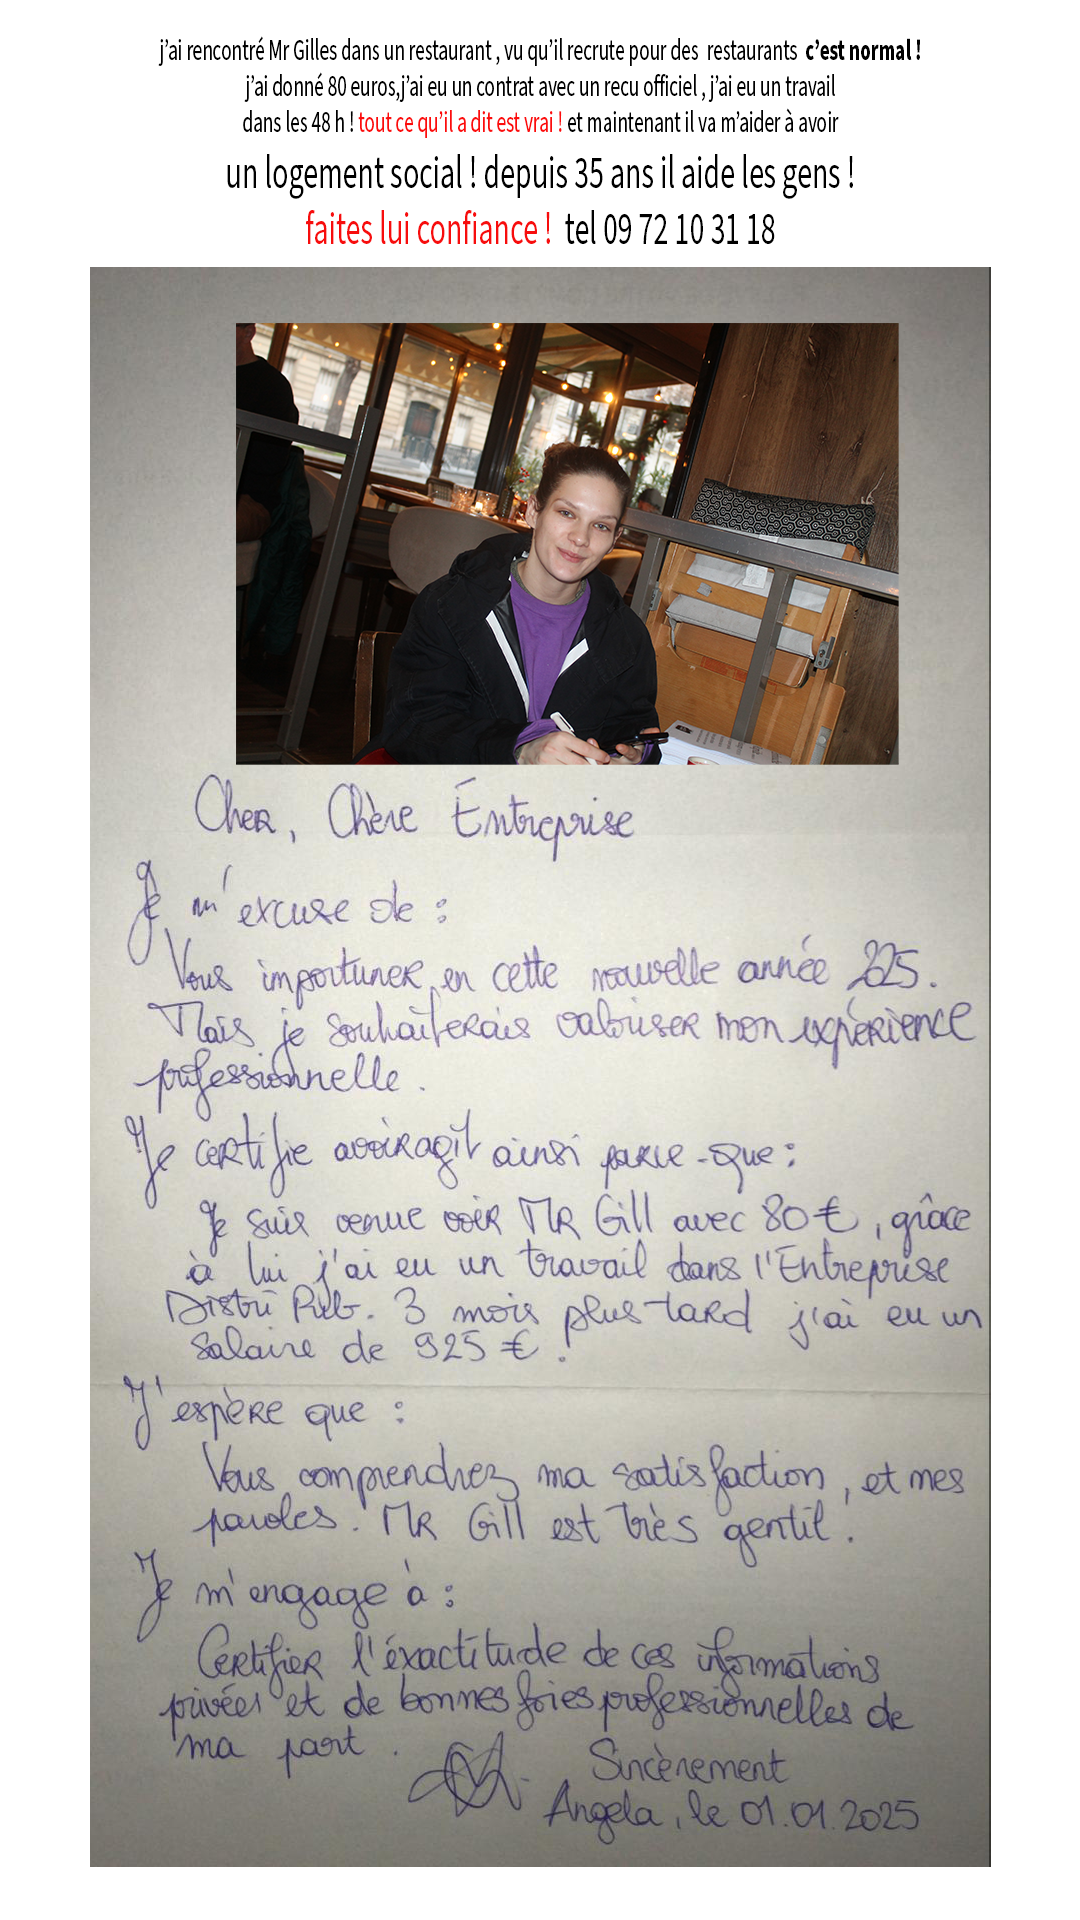 j'ai rencontré Mr Gilles dans un restaurant , vu qu'il recrute pour des restaurants c'est normal !
j'ai donné 80 euros,j'ai eu un contrat avec un recu officiel , j'ai eu un travail
dans les 48 h ! tout ce qu'il a dit est vrai ! et maintenant il va m'aider à avoir
un logement social ! depuis 35 ans il aide les gens !
faites lui confiance ! tel 09 72 10 31 18
Cher, Chère Entreprise
Je m'excuse de :
Vous importuner en cette nouvelle année 2025.
Mais je souhaiterais valoriser mon expérience
professionnelle.
Je certifie avoir agit ainsi parce-que :
Je suis venue voir Mr Gill avec 80 €, grâce
à lui j'ai eu un travail dans l'Entreprise
Distri Pub. 3 mois plus tard j'ai eu un
salaire de 925 € !
J'espère que :
Vous comprendrez ma satisfaction, et mes
paroles. Mr Gill est très gentil.
Je m'engage à :
Certifier l'éxactitude de ces informations
privées et de bonnes foies professionnelles de
ma part.
Sincèrement
Angela, le 01.01.2025